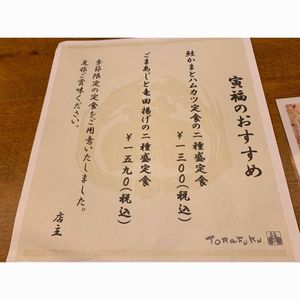 寅福のおすすめ
鮭かまとハムカツ定食の二種盛定食
￥一三〇〇(税込)
ごまあじと竜田揚げの二種盛定食
￥一五九〇(税込)
季節限定の定食をご用意いたしました。
是非ご賞味ください。
店主
TORAFUKU